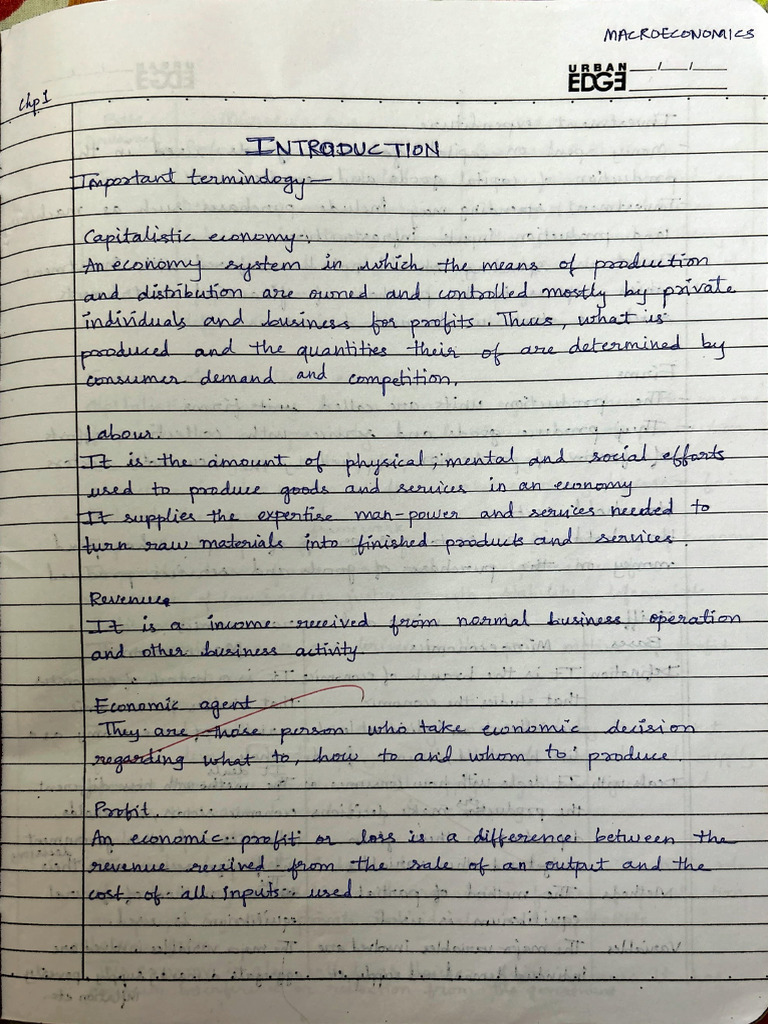 MACROECONOMICS
URBAN
EDGE
Chp 1
INTRODUCTION
Important terminology—
Capitalistic economy.
An economy system in which the means of production
and distribution are owned and controlled mostly by private
individuals and business for profits. Thus, what is
produced and the quantities their of are determined by
consumer demand and competition.
Labour.
It is the amount of physical, mental and social efforts
used to produce goods and services in an economy
It supplies the expertise man-power and services needed to
turn raw materials into finished products and services.
Revenue.
It is a income received from normal business operation
and other business activity
Economic agent
They are, those person who take economic decision
regarding what to, how to and whom to produce.
Profit.
An economic profit or loss is a difference between the
revenue received from the sale of an output and the
cost, of all inputs used